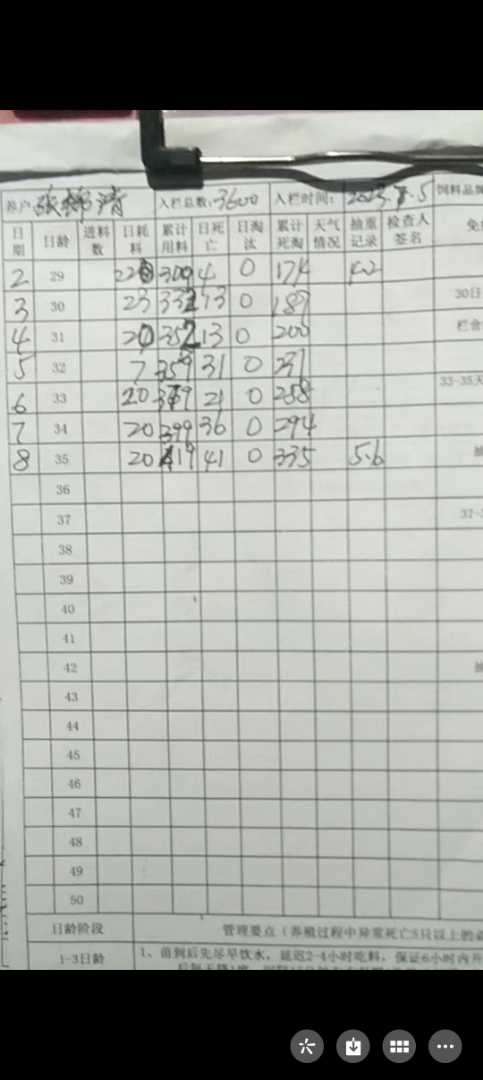 养户: 张 清 入栏总数: 3600 入栏时间: 2023.7.5 饲料品牌
日期 日龄 进料数 日耗料 累计用料 日死亡 日淘汰 累计死淘 天气情况 抽重记录 检查人签名 免
2 29 22 309 4 0 174 4.2
3 30 23 332 13 0 187 30日
4 31 20 352 13 0 200 栏舍
5 32 7 359 31 0 231
6 33 20 379 21 0 258 33-35天
7 34 20 399 36 0 294
8 35 20 419 41 0 335 5.6 抽
36
37 37-
38
39
40
41
42 抽
43
44
45
46
47
48
49
50
日龄阶段 管理要点（养殖过程中异常死亡5只以上的必
1-3日龄 1、苗到后先尽早饮水，延迟2-4小时吃料，保证6小时内开